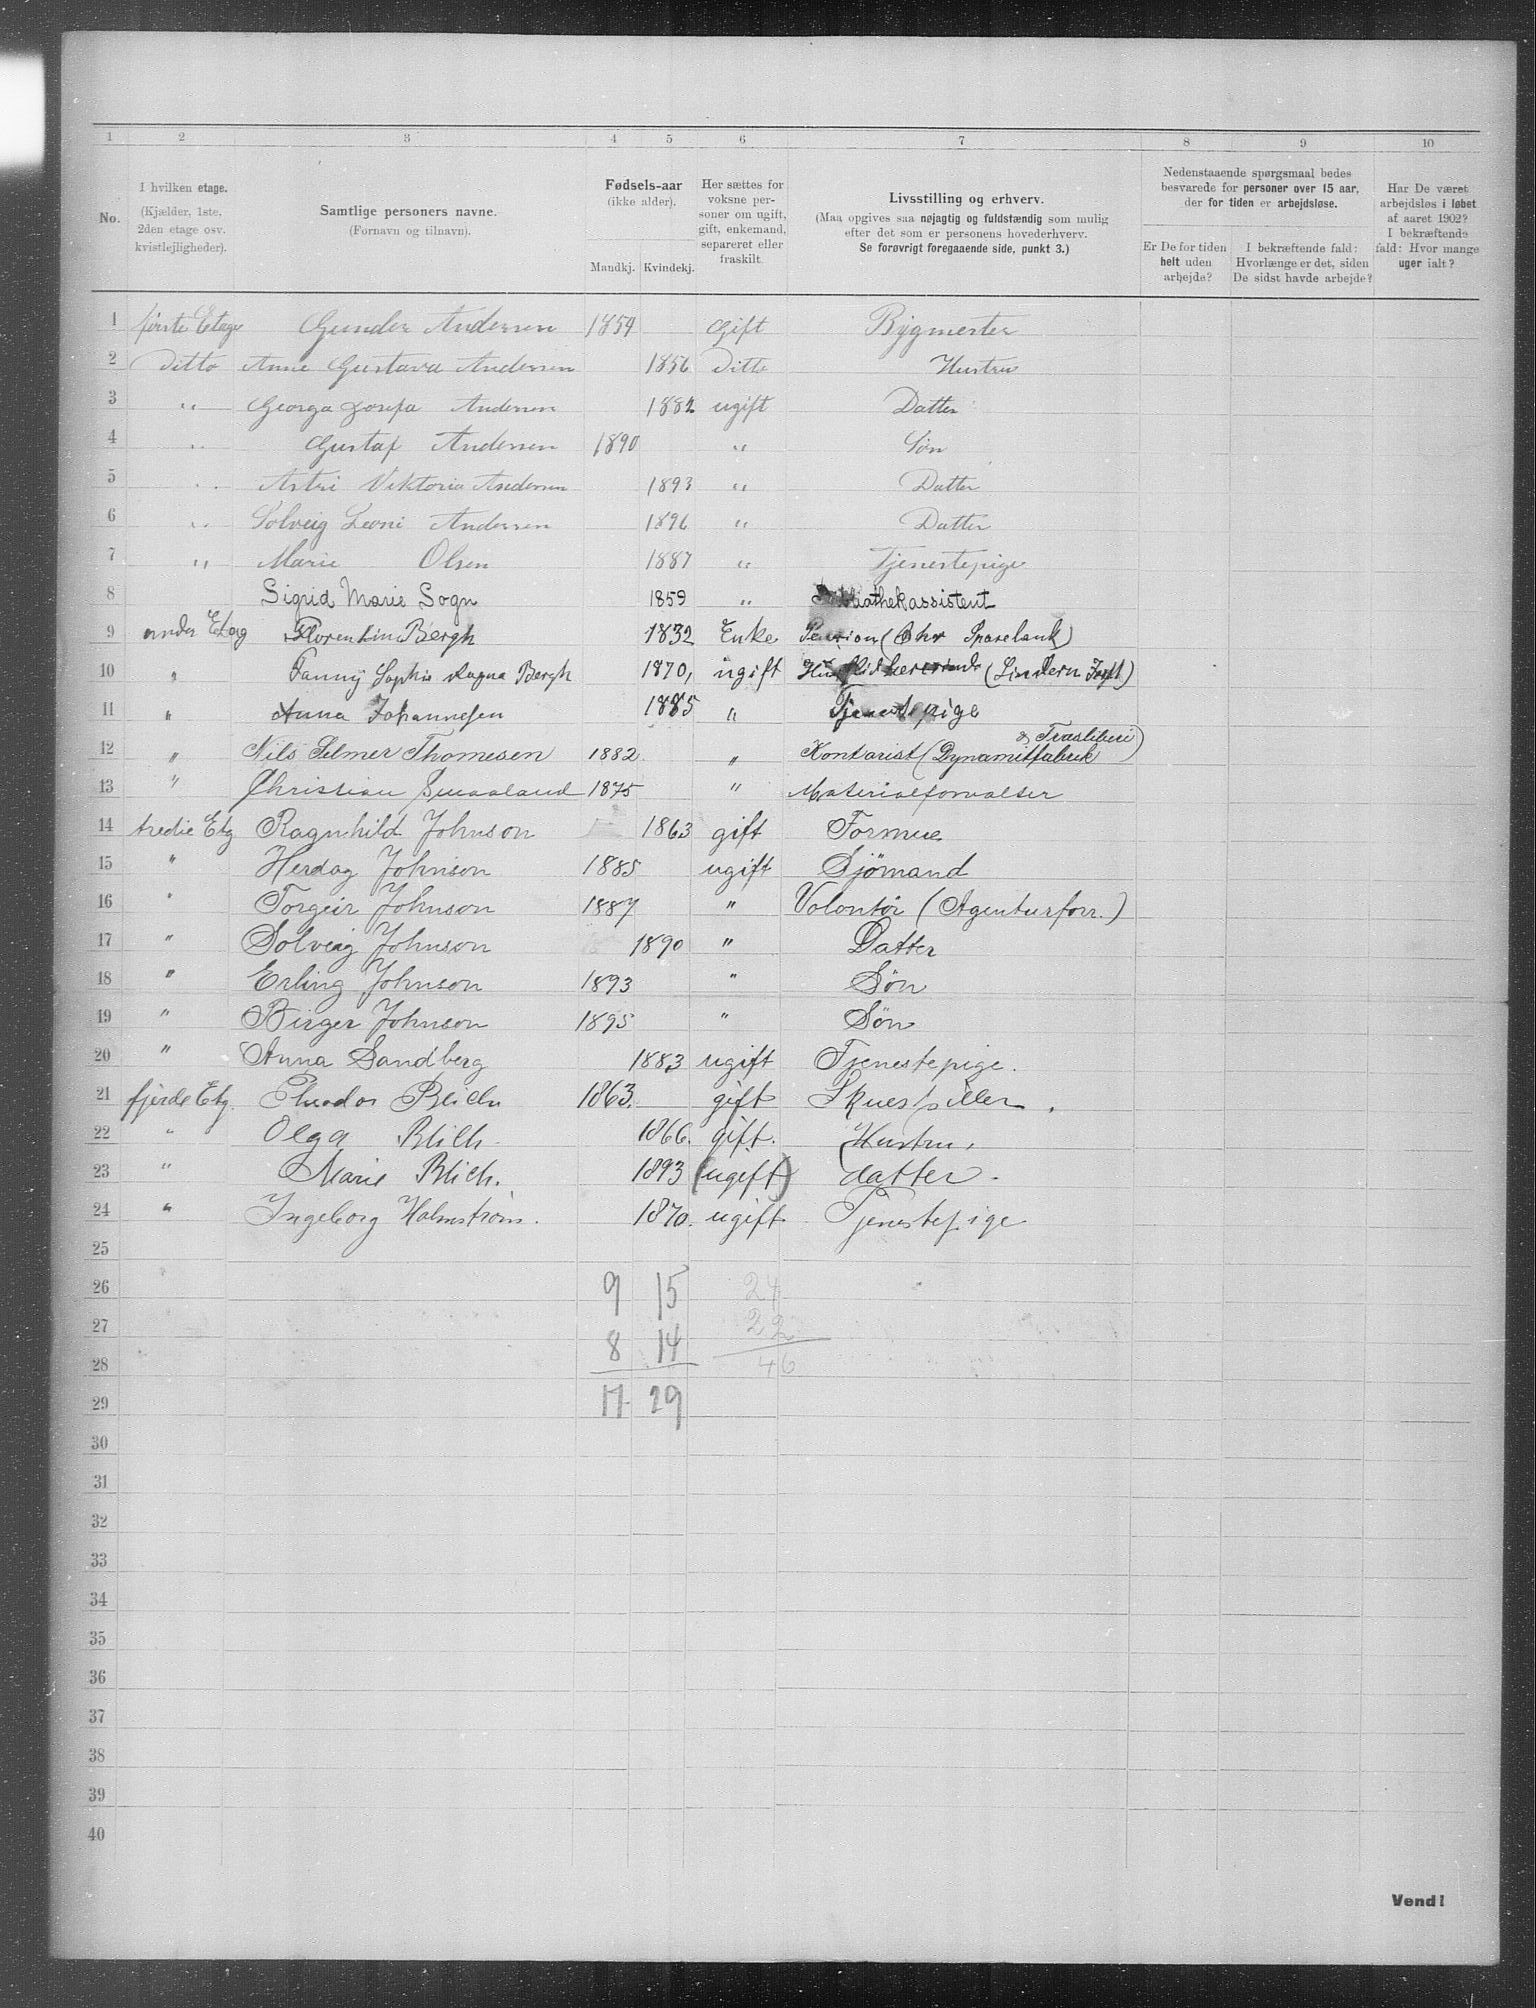 1 2 3 4 5 6 7 8 9 10
No.
I hvilken etage.
(Kjælder, 1ste,
2den etage osv.
kvistlejligheder).
Samtlige personers navne.
(Fornavn og tilnavn).
Fødsels-aar
(ikke alder).
Mandkj. Kvindekj.
Her sættes for
voksne per-
soner om ugift,
gift, enkemand,
separeret eller
fraskilt.
Livsstilling og erhverv.
(Maa opgives saa nøjagtig og fuldstændig som mulig
efter det som er personens hovederhverv.
Se forøvrigt foregaaende side, punkt 3.)
Nedenstaaende spørgsmaal bedes
besvarede for personer over 15 aar,
der for tiden er arbejdsløse.
Er De for tiden
helt uden
arbejde?
I bekræftende fald:
Hvorlænge er det, siden
De sidst havde arbejde?
Har De været
arbejdsløs i løbet
af aaret 1902?
I bekræftende
fald: Hvor mange
uger ialt?
1 første Etage Gunder Andersen 1854 Gift Bygmester
2 Ditto Anne Gustava Andersen 1856 Ditto Hustru
3 " Georga Josefa Andersen 1882 ugift Datter
4 " Gustaf Andersen 1890 " Søn
5 " Astri Viktoria Andersen 1893 " Datter
6 " Solveig Leoni Andersen 1896 " Datter
7 " Marie Olsen 1887 " Tjenestepige
8 Sigrid Marie Sogn 1859 "
9 anden Etag Florentin Bergh 1832 Enke Pension (Chr Sparebank)
10 " Fanny Sophie Ragna Bergh 1870, ugift
11 " Anna Johannesen 1885 " Tjenestepige
12 " Nils Selmer Thomesen 1882 " Kontorist (Dynamitfabrik
13 " Christian Smaaland 1875 " Materialforvalter
14 tredie Etg Ragnhild Johnson 1863 gift Formue
15 " Herdag Johnson 1885 ugift Sjömand
16 " Torgeir Johnson 1887 " Volontör (Agenturforr.)
17 " Solveig Johnson 1890 " Datter
18 " Erling Johnson 1893 " Søn
19 " Birger Johnson 1895 " Søn
20 " Anna Sandberg 1883 ugift Tjenestepige.
21 fjerde Etg. Theodor Blich 1863. gift Skuespiller.
22 " Olga Blich 1866. gift. Hustru.
23 " Marie Blich. 1893 (ugift) datter.
24 " Ingeborg Holmstrøm. 1870. ugift Tjenestepige
25
26 9 15 24
27 8 14 22
28 46
29 17 29
30
31
32
33
34
35
36
37
38
39
40
Vend!